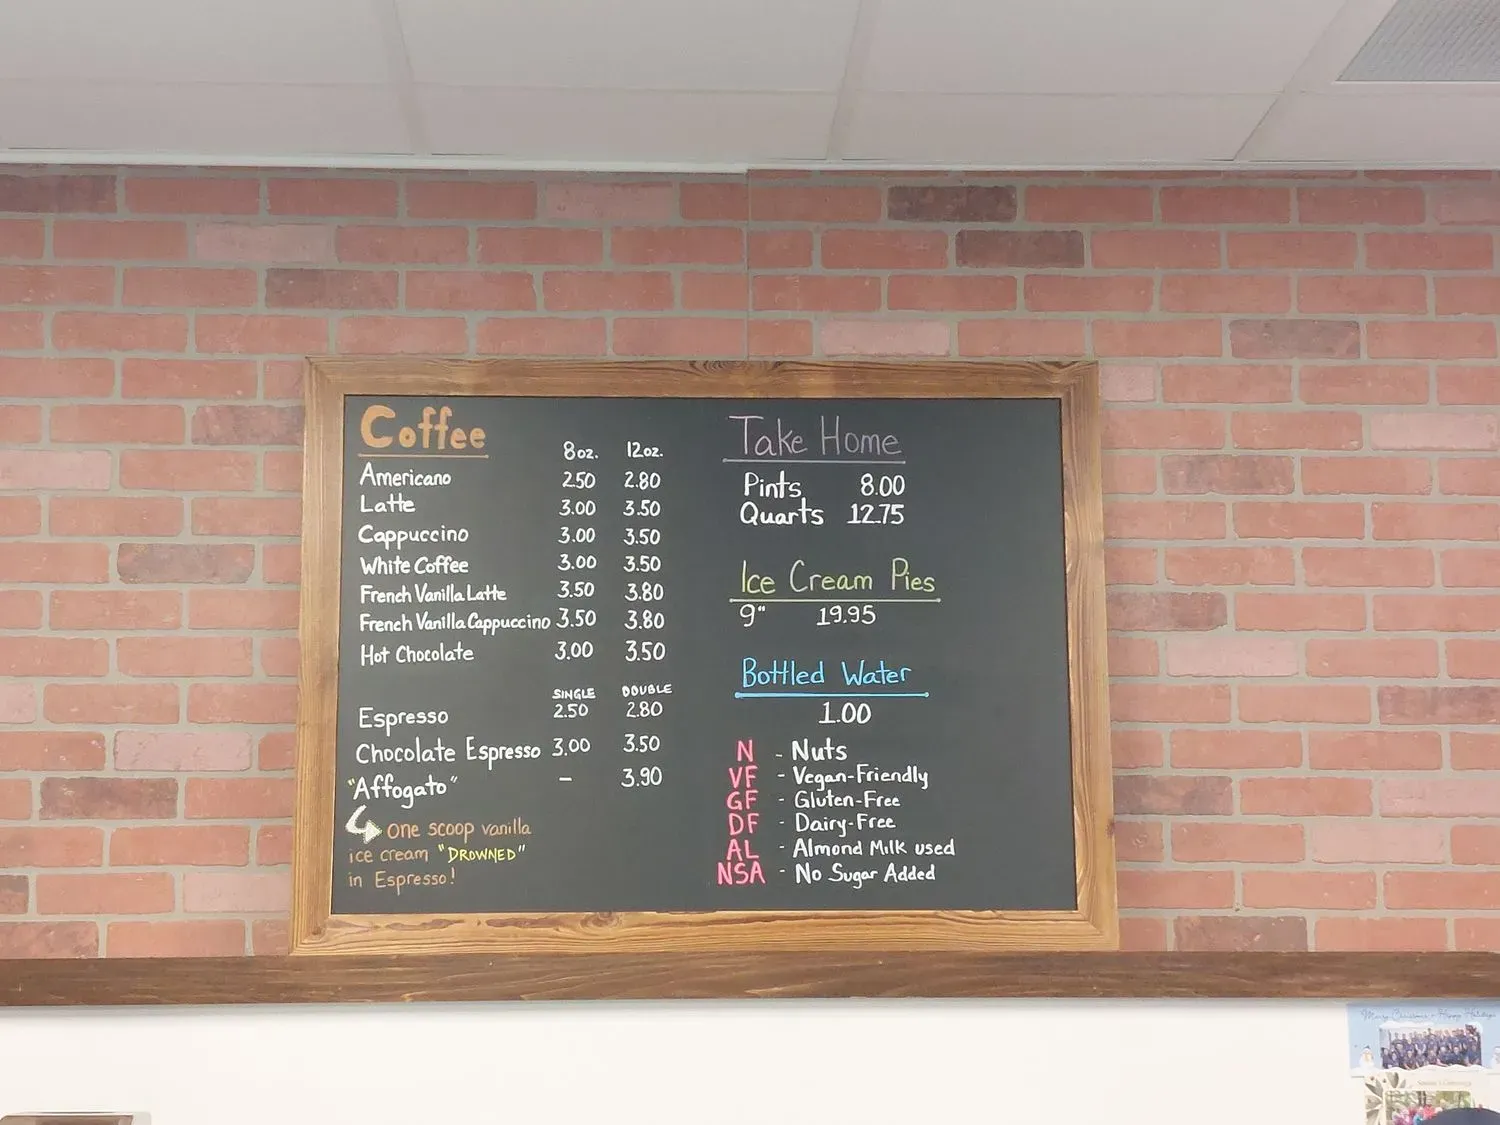 Coffee
8oz. 12oz.
Americano 2.50 2.80
Latte 3.00 3.50
Cappuccino 3.00 3.50
White Coffee 3.00 3.50
French Vanilla Latte 3.50 3.80
French Vanilla Cappuccino 3.50 3.80
Hot Chocolate 3.00 3.50
SINGLE DOUBLE
Espresso 2.50 2.80
Chocolate Espresso 3.00 3.50
"Affogato" - 3.90
one scoop vanilla
ice cream "DROWNED"
in Espresso!
Take Home
Pints 8.00
Quarts 12.75
Ice Cream Pies
9" 19.95
Bottled Water
1.00
N - Nuts
VF - Vegan-Friendly
GF - Gluten-Free
DF - Dairy-Free
AL - Almond Milk used
NSA - No Sugar Added
Merry Christmas & Happy Holidays